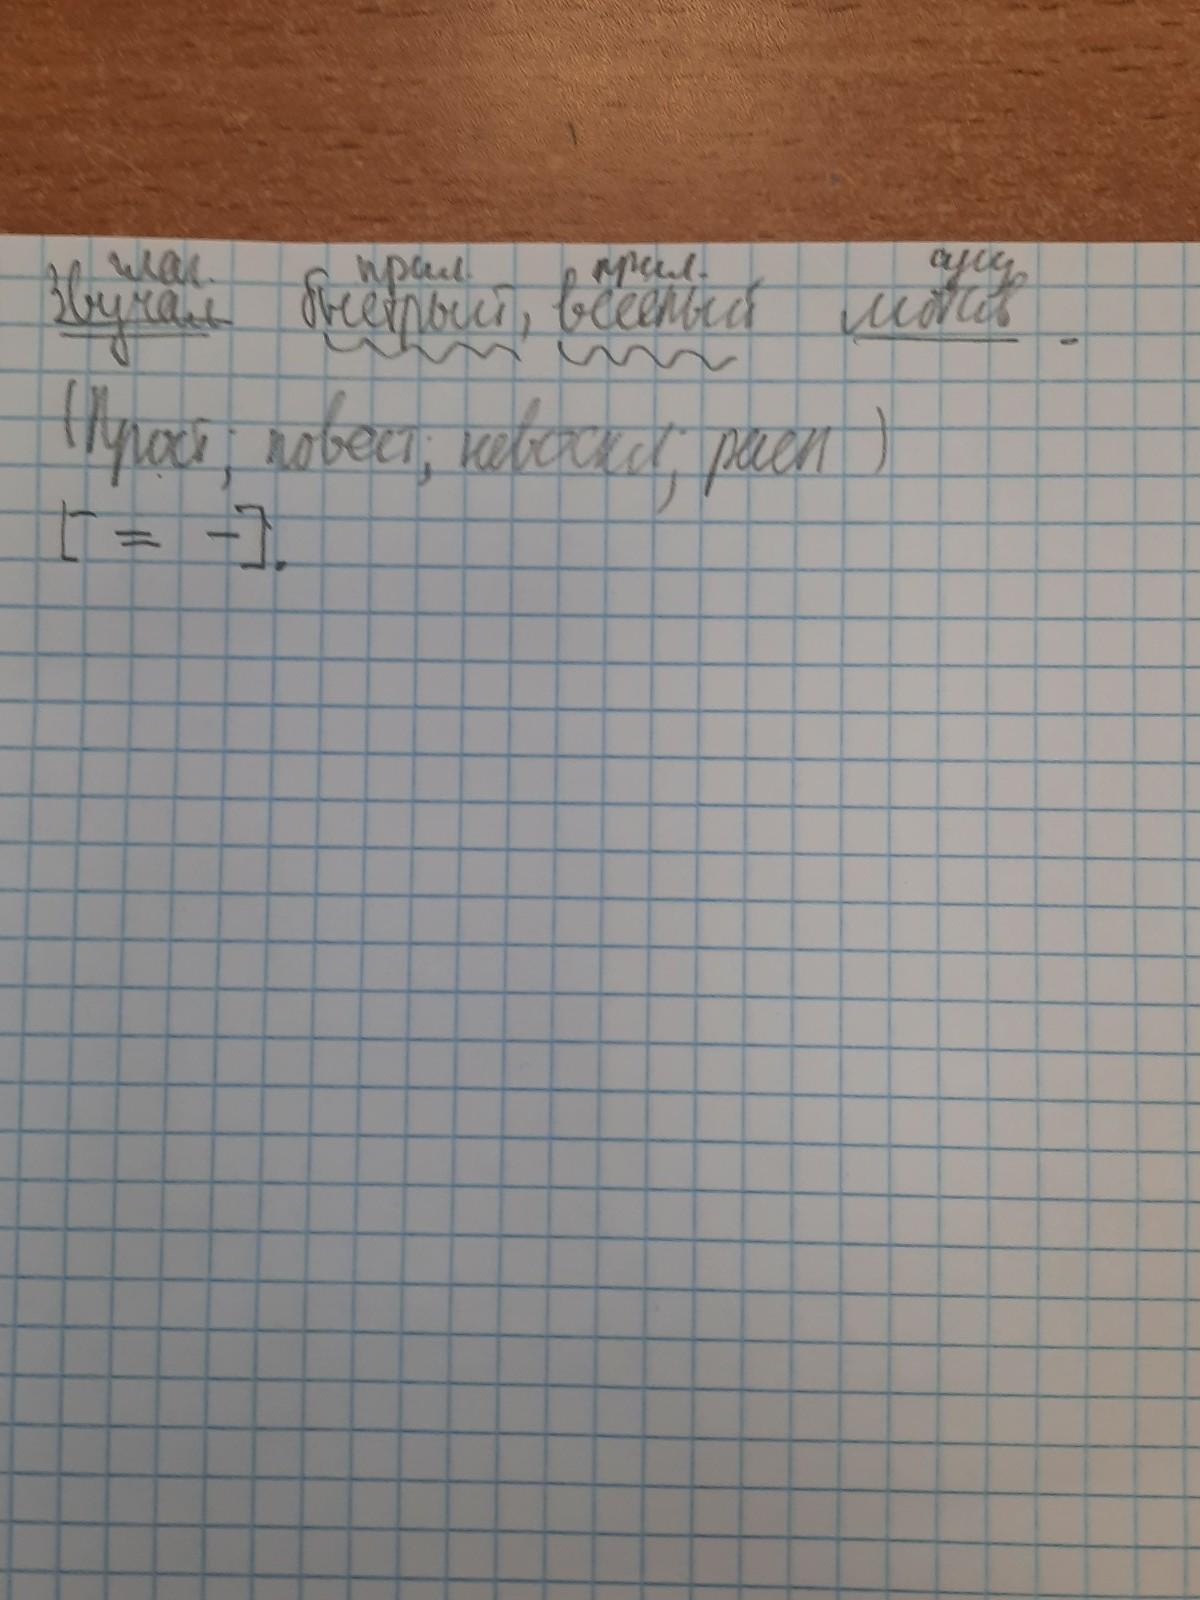 глаг. прил. прил. сущ.
Звучал быстрый, веселый мотив.
(Прост; повест; невоскл; расп)
[ = - ].